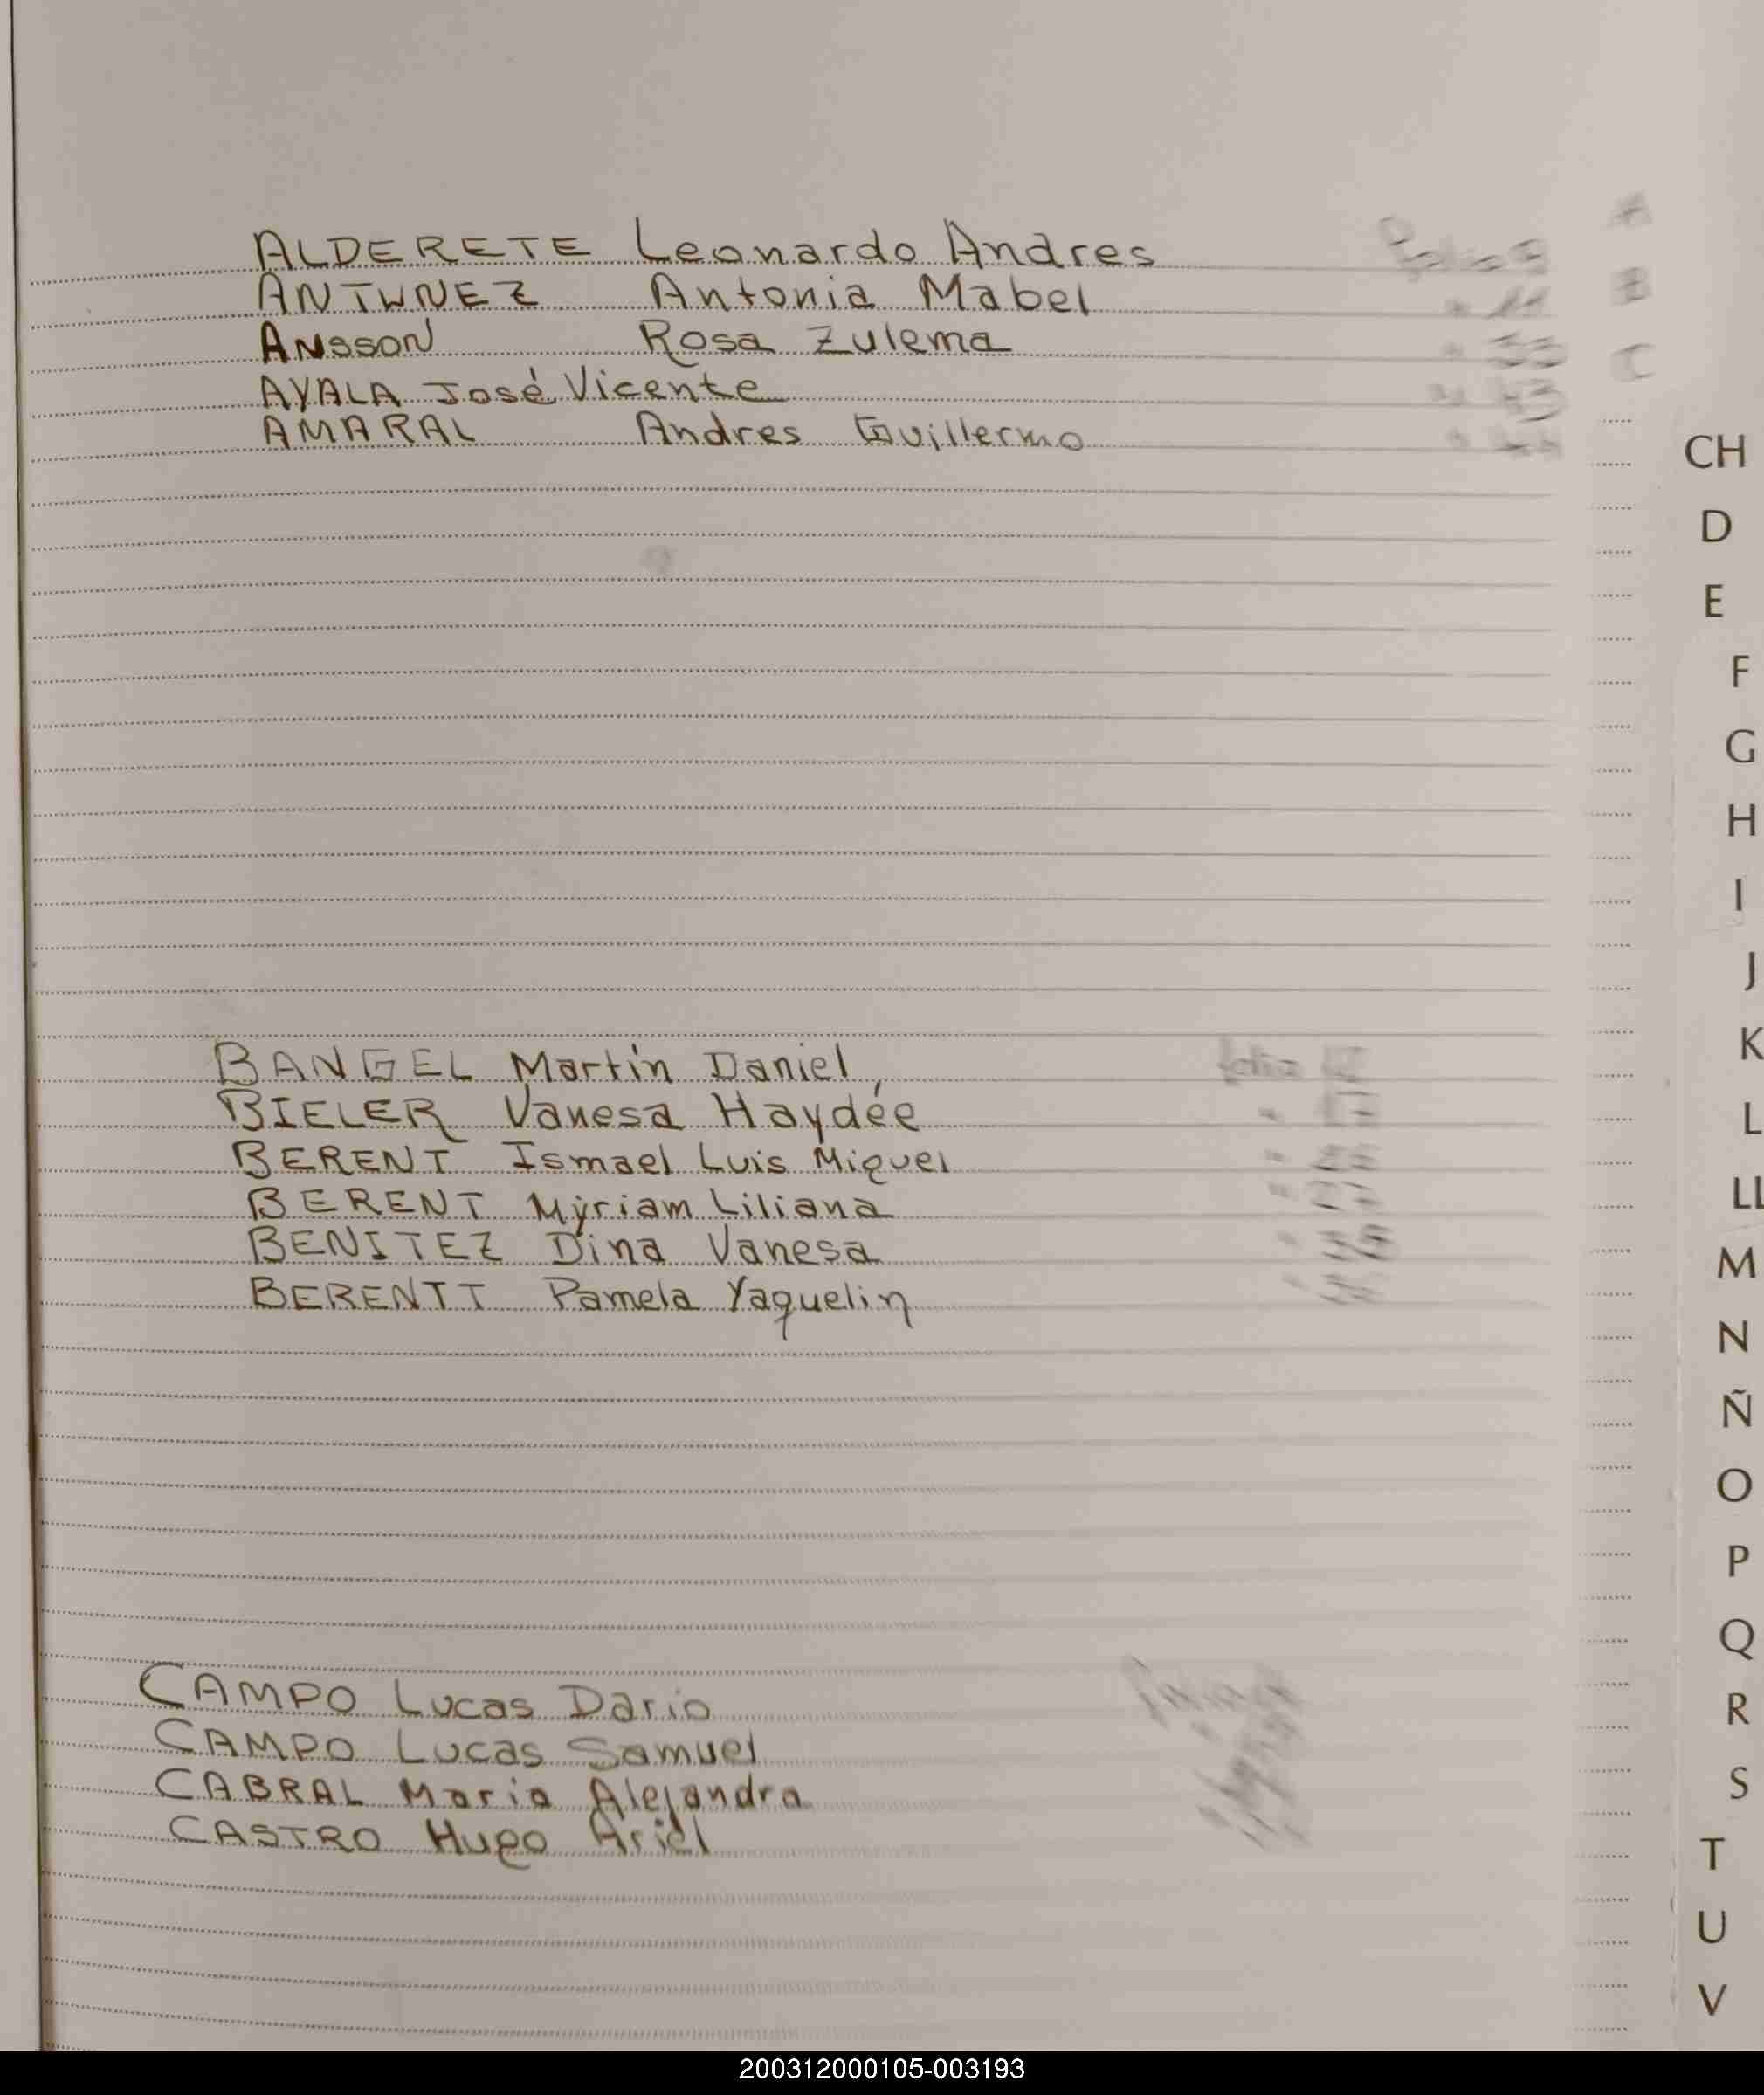 ALDERETE Leonardo Andres Folio 9
ANTUNEZ Antonia Mabel " 11
ANSSON Rosa Zulema " 33
AYALA José Vicente " 43
AMARAL Andres Guillermo
B
C
CH
D
E
F
G
H
I
J
BANGEL Martín Daniel, folio
K
BIELER Vanesa Haydée
L
BERENT Ismael Luis Miguel
BERENT Myriam Liliana
LL
BENITEZ Dina Vanesa
M
BERENTT Pamela Yaquelin
N
Ñ
O
P
Q
CAMPO Lucas Dario
R
CAMPO Lucas Samuel
S
CABRAL Maria Alejandra
CASTRO Hugo Ariel
T
U
V
200312000105-003193